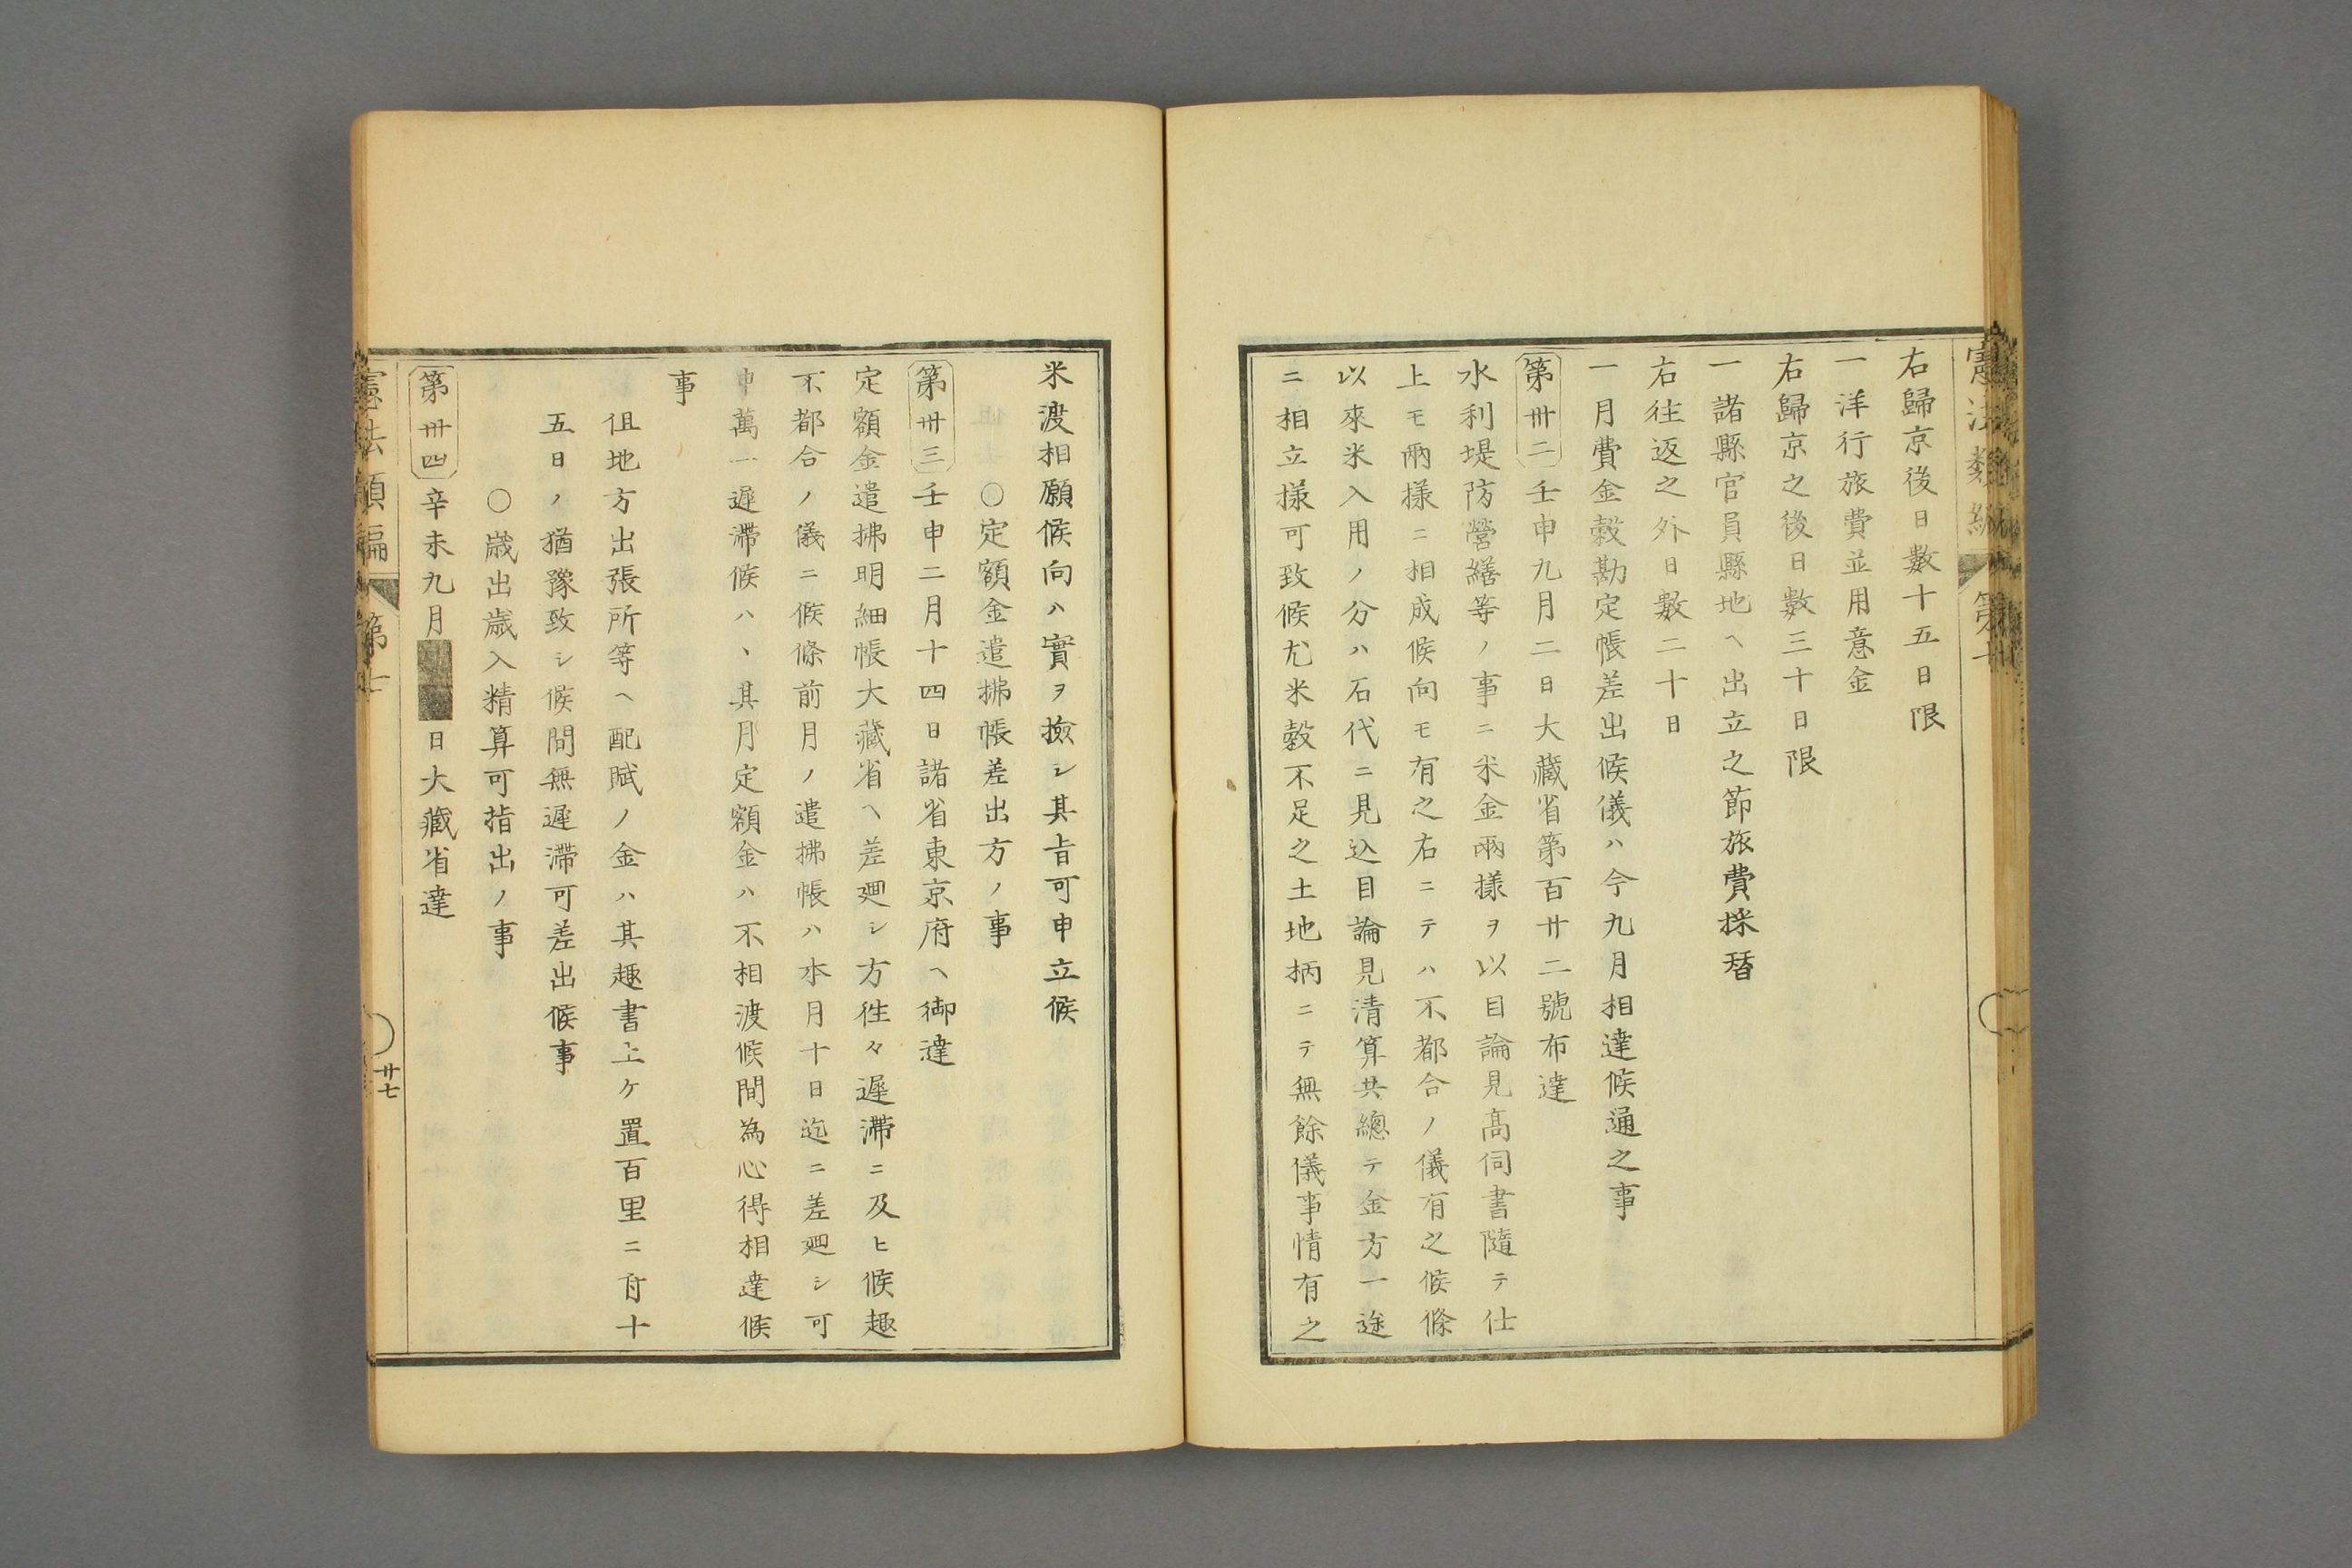 憲法類編 第十
右歸京後日數十五日限
一洋行旅費並用意金
右歸京之後日數三十日限
一諸縣官員縣地ヘ出立之節旅費採替
右往返之外日數二十日
一月費金穀勘定帳差出候儀ハ今九月相達候通之事
第卅二壬申九月二日大藏省第百廿二號布達
水利堤防營繕等ノ事ニ米金兩樣ヲ以目論見高伺書隨テ仕
上モ兩樣ニ相成候向モ有之右ニテハ不都合ノ儀有之候條
以來米入用ノ分ハ石代ニ見込目論見清算共總テ金方一途
ニ相立樣可致候尤米穀不足之土地柄ニテ無餘儀事情有之
米渡相願候向ハ實ヲ撿シ其旨可申立候
○定額金遣拂帳差出方ノ事
第卅三壬申二月十四日諸省東京府ヘ御達
定額金遣拂明細帳大藏省ヘ差廻シ方徃々遲滯ニ及ヒ候趣
不都合ノ儀ニ候條前月ノ遣拂帳ハ本月十日迄ニ差廻シ可
申萬一遲滯候ハヽ其月定額金ハ不相渡候間為心得相達候
事
但地方出張所等ヘ配賦ノ金ハ其趣書上ケ置百里ニ付十
五日ノ猶豫致シ候間無遲滯可差出候事
○歳出歳入精算可指出ノ事
第卅四辛未九月 日大藏省達
憲法類編 第十 廿七